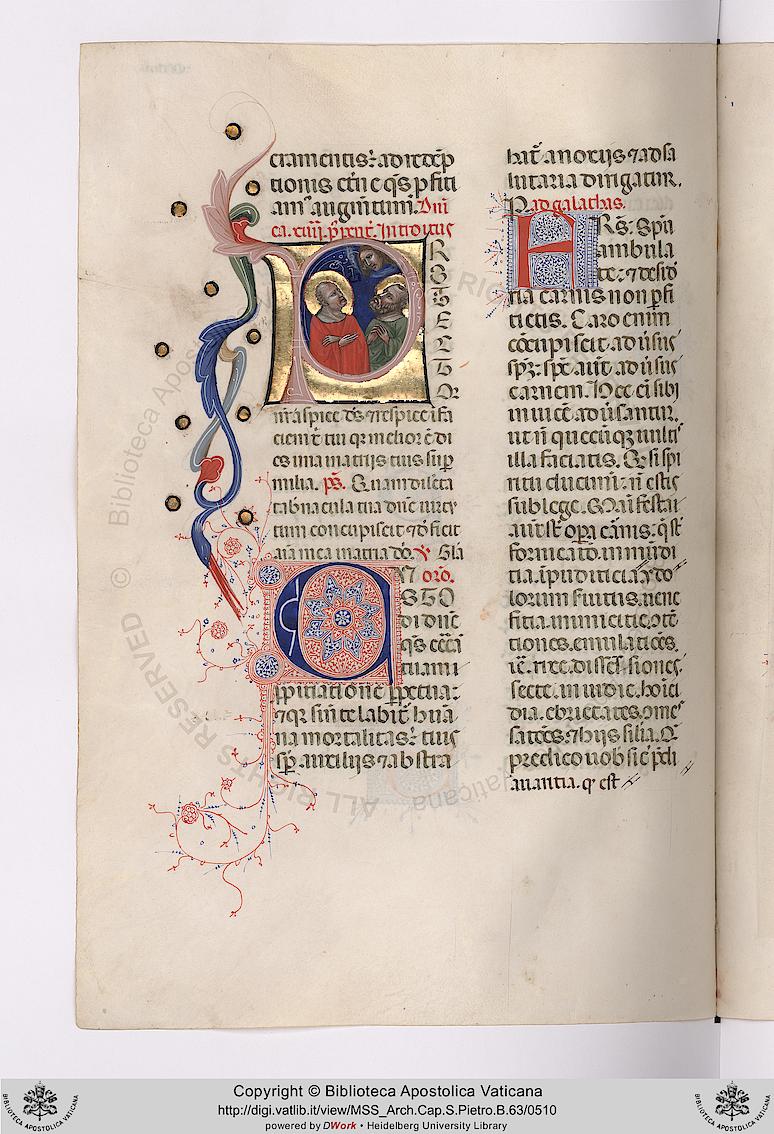 cramentis: ad redēp
tionis et̄n e q̄s p̄fiti
am augm̄tum. Dn̄i
ca. xiiii.
Introitus
P
R
O
T
E
C
T
Or
aspice d̄s ⁊ respice ī fa
ciem tui qr melior ē di
es una atriis tuis sup̄
milia. p̄s. Quam dilecta
tab̄nacula tua dn̄e
tum concupiscit ⁊ deficit
aīa mea
Gla
orō.
C
USTO
di dn̄e
q̄s ecc̄am
tuam
p̄pitiatione p̄petua:
⁊ qr sine te labit̄ huma
na mortalitas: tuis
sp̄ auxiliis ⁊ abstra
hat̄ a noxiis ⁊ ad sa
lutaria dirigatur.
ad galathas.
F
Rs̄. Sp̄u
ambula
te: ⁊ desid̄
ria carnis non p̄fi
cietis. Caro enim
cōcupiscit adūsus
sp̄m: sp̄s aut̄ adūsus
carnem. Hec ei sibi
inuicē adūsantur.
ut n̄ quecūqz uultis
illa faciatis. Qd̄ si spi
ritu ducimini: n̄ estis
sub lege. Manifesta
aut̄ st̄ opera carnis. q̄ st̄
fornicatō. inmundi
tia. īpudicitia. ydo
lorum
ficia. inimicitie. cōtē
tiones. emulatiōes.
ire. rixe. dissēsiones.
secte. inuidie. homici
dia. ebrietates. comes
satōes. ⁊ hiis silia. Q
predico uobis sic p̄di
quia. q̄ est
Copyright © Biblioteca Apostolica Vaticana
http://digi.vatlib.it/view/MSS_Arch.Cap.S.Pietro.B.63/0510
powered by DWork • Heidelberg University Library
BIBLIOTECA APOSTOLICA VATICANA
BIBLIOTECA APOSTOLICA VATICANA
© Biblioteca Apostolica Vaticana
ALL RIGHTS RESERVED